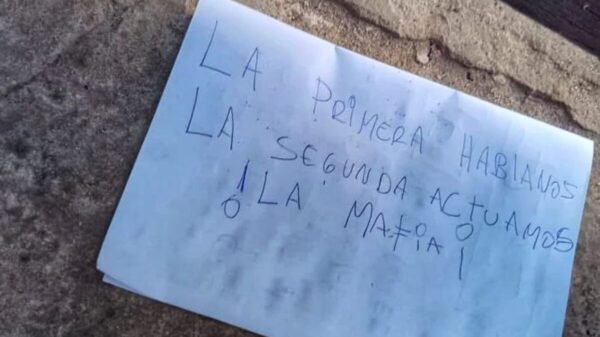 LA PRiMERA HABlANOS
LA SEGUNDA ACTUAMOS
!LA MAFiA¡